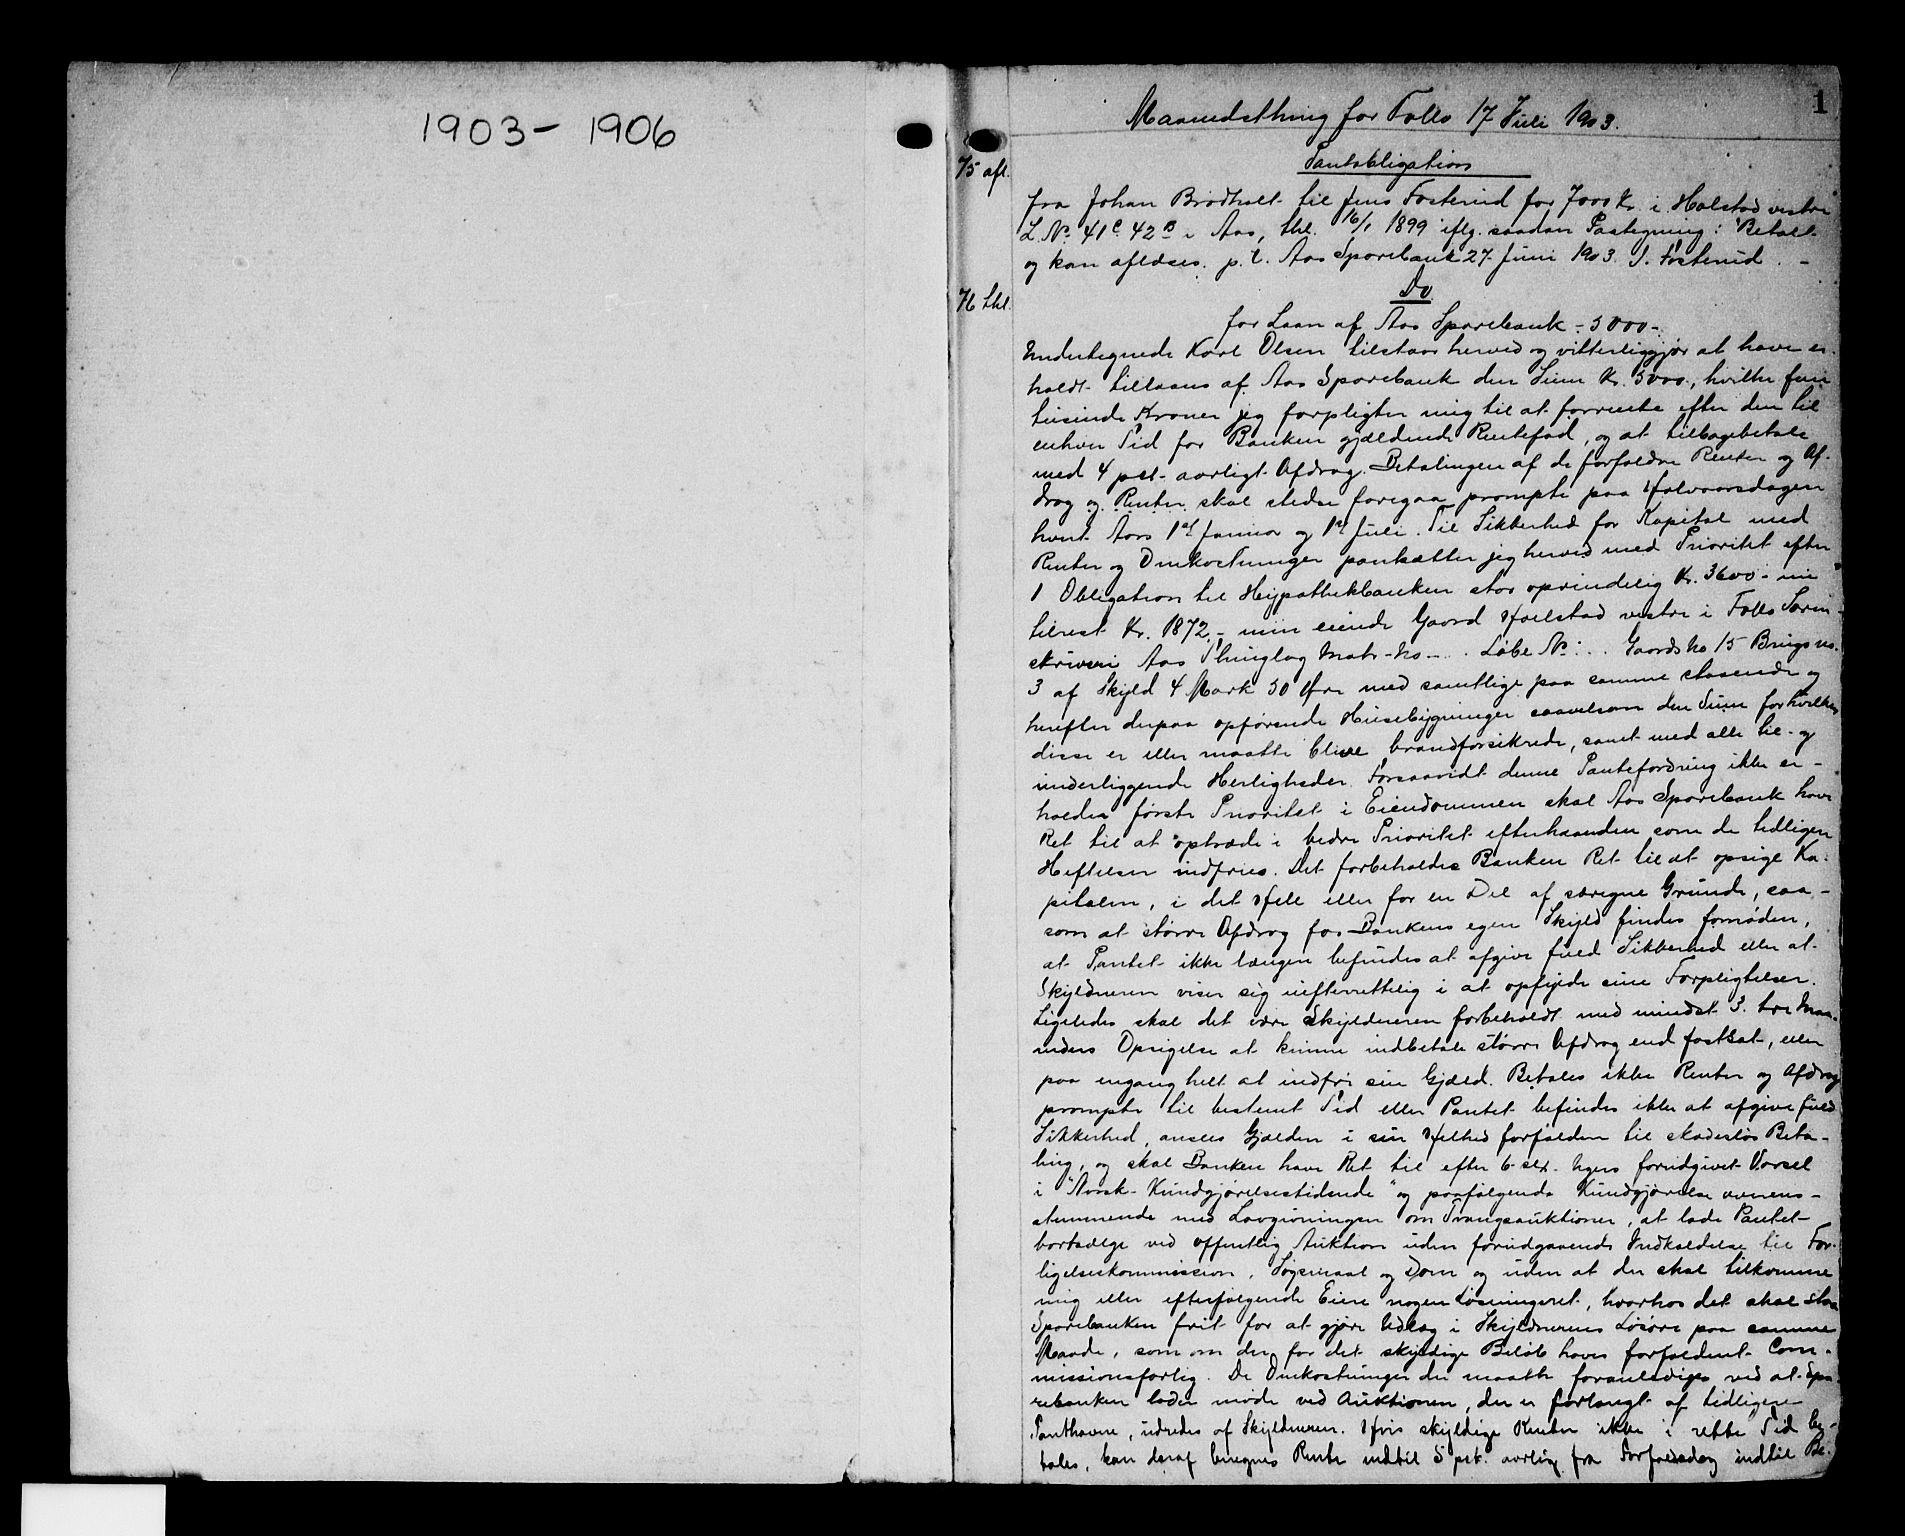 1903 - 1906
1
Maanedsthing for Follo 17 Juli 1903.
75 afl.
Pantobligation
fra Johan Brodholt til Jens Fosterud for 7000 Kr. i Holstad vestre
L. No. 41c 42B i Aas, thl. 16/1 1899 iflg. saadan Paategning: "Betalt
og kan aflæses. p.t. Aas Sparebank 27 Juni 1903. J. Fosterud. -
76 thl.
Do
for Laan af Aas Sparebank - 5000 -
Undertegnede Karl Olsen tilstaar herved og vitterliggjør at have er-
holdt tillaans af Aas Sparebank den Sum Kr. 5000, hvilke fem
tusinde Kroner jeg forpligter mig til at forrente efter den til
enhver Tid for Banken gjældende Rentefod, og at tilbagebetale
med 4 pct. aarligt Afdrag. Betalingen af de forfaldne Renter og Af-
drag og Renter skal stedse foregaa prompte paa Halvaarsdagen
hvert Aars 1ste Januar og 1ste Juli. Til Sikkerhed for Kapital med
Renter og Omkostninger pantsætter jeg herved med Prioritet efter
1 Obligation til Hypothekbanken stor oprindelig Kr. 3600 - nu
tilrest Kr. 1872, - min eiende Gaard Holstad vestre i Follo Soren-
skriveri Aas Thinglag Matr-No - . . Løbe No: . . Gaards No 15 Brugs no.
3 af Skyld 4 Mark 50 Øre med samtlige paa samme staaende og
herefter derpaa opførende Husebygninger saavelsom den Sum for hvilken
disse er eller maatte blive brandforsikrede, samt med alle til- og
underliggende Herligheder. Forsaavidt denne Pantefordring ikke er-
holder første Prioritet i Eiendommen skal Aas Sparebank have
Ret til at optræde i bedre Prioritet efterhaanden som de tidligere
Heftelser indfries. Det forbeholdes Banken Ret til at opsige Ka-
pitalen, i det Hele eller for en Del af særegne Grunde, saa-
som at større Afdrag for Bankens egen Skyld findes fornøden,
at Pantet ikke længer befindes at afgive fuld Sikkerhed eller at
Skyldneren viser sig uefterrettelig i at opfylde sine Forpligtelser.
Ligeledes skal det være Skyldneren forbeholdt med mindst 3. tre Maa-
neders Opsigelse at kunne indbetale større Afdrag end fastsat, eller
paa engang helt at indfri sin Gjæld. Betales ikke Renter og Afdrag
prompte til bestemt Tid eller Pantet befindes ikke at afgive fuld
Sikkerhed, ansees Gjælden i sin Helhed forfalden til skadesløs Beta-
ling, og skal Banken have Ret til efter 6 sex. Ugers forudgivet Varsel
i "Norsk Kundgjørelsestidende" og paafølgende Kundgjørelse overens-
stemmende med Lovgivningen om Tvangsauktioner, at lade Pantet
bortsælge ved offentlig Auktion uden forudgaaende Indkaldelse til For-
ligelseskommission, Søgsmaal og Dom og uden at der skal tilkomme
mig eller efterfølgende Eiere nogen Løsningsret, hvorhos det skal staa
Sparebanken frit for at gjøre Udlæg i Skyldnerens Løsøre paa samme
Maade, som om der for det skyldige Beløb haves forfaldent Com-
missionsforlig. De Omkostninger der maatte foranlediges ved at Spa-
rebanken lader møde ved Auktionen, der er forlangt af tidligere
Panthavere, udredes af Skyldneren. Hvis skyldige Renter ikke i rette Tid be-
tales, kan deraf beregnes Rente indtil 5 pct. aarlig fra Forfaldsdag indtil Be-